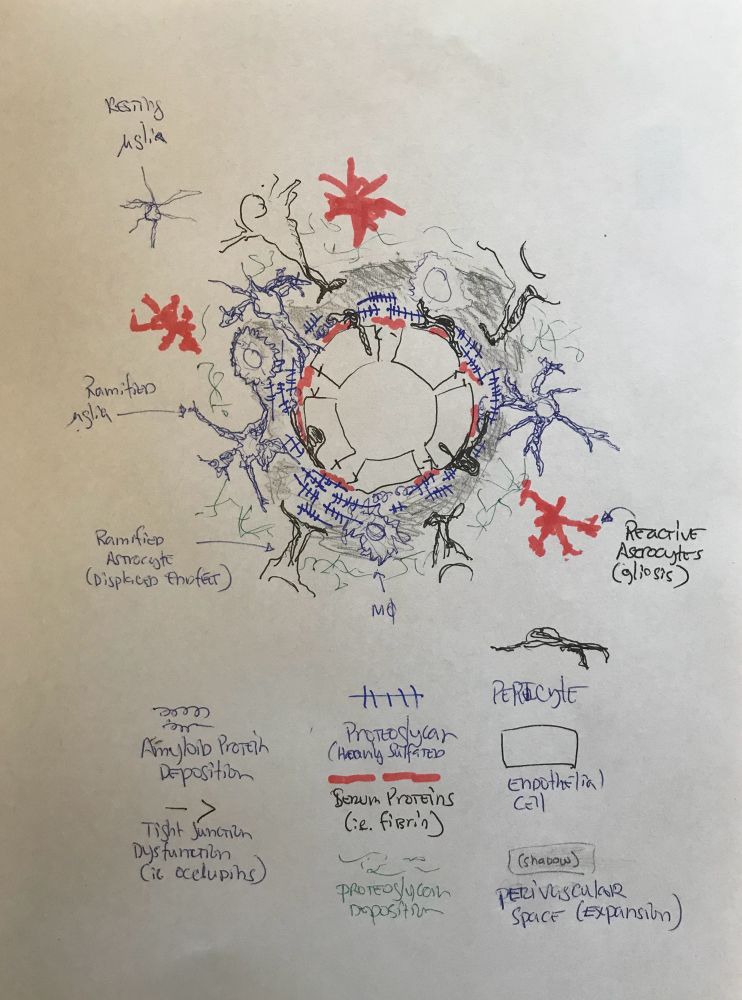 Resting
μglia
Ramified
μglia
Ramified
Astrocyte
(Displaced Endfeet)
MΦ
Reactive
Astrocytes
(gliosis)
Pericyte
Amyloid Protein
Deposition
Proteoglycan
(Heavily Sulfated
Endothelial
Cell
Serum Proteins
(ie. fibrin)
Tight Junction
Dysfunction
(ie occludins)
(shadow)
proteoglycan
Deposition
Perivascular
Space (Expansion)